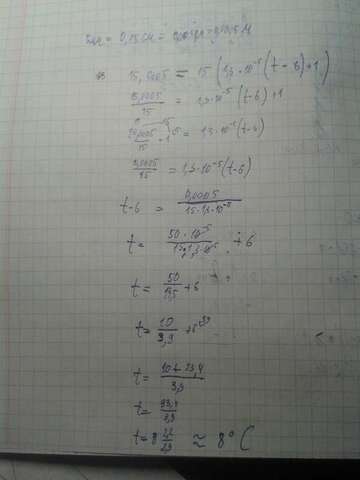 15,0005 = 15 (1,3·10⁻⁵ (t - 6) + 1)
15,0005/15 = 1,3·10⁻⁵ (t-6) + 1
= 1,3·10⁻⁵ (t-6)
0,0005/15 = 1,3·10⁻⁵ (t-6)
t-6 = 0,0005/15·1,3·10⁻⁵
t = 50·10⁻⁵/15·1,3·10⁻⁵ + 6
t = 50/19,5 + 6
t = 10/3,9 + 6
t = 10+23,4/3,9
t = 33,4/3,9
t = 8 22/39 ≈ 8° C